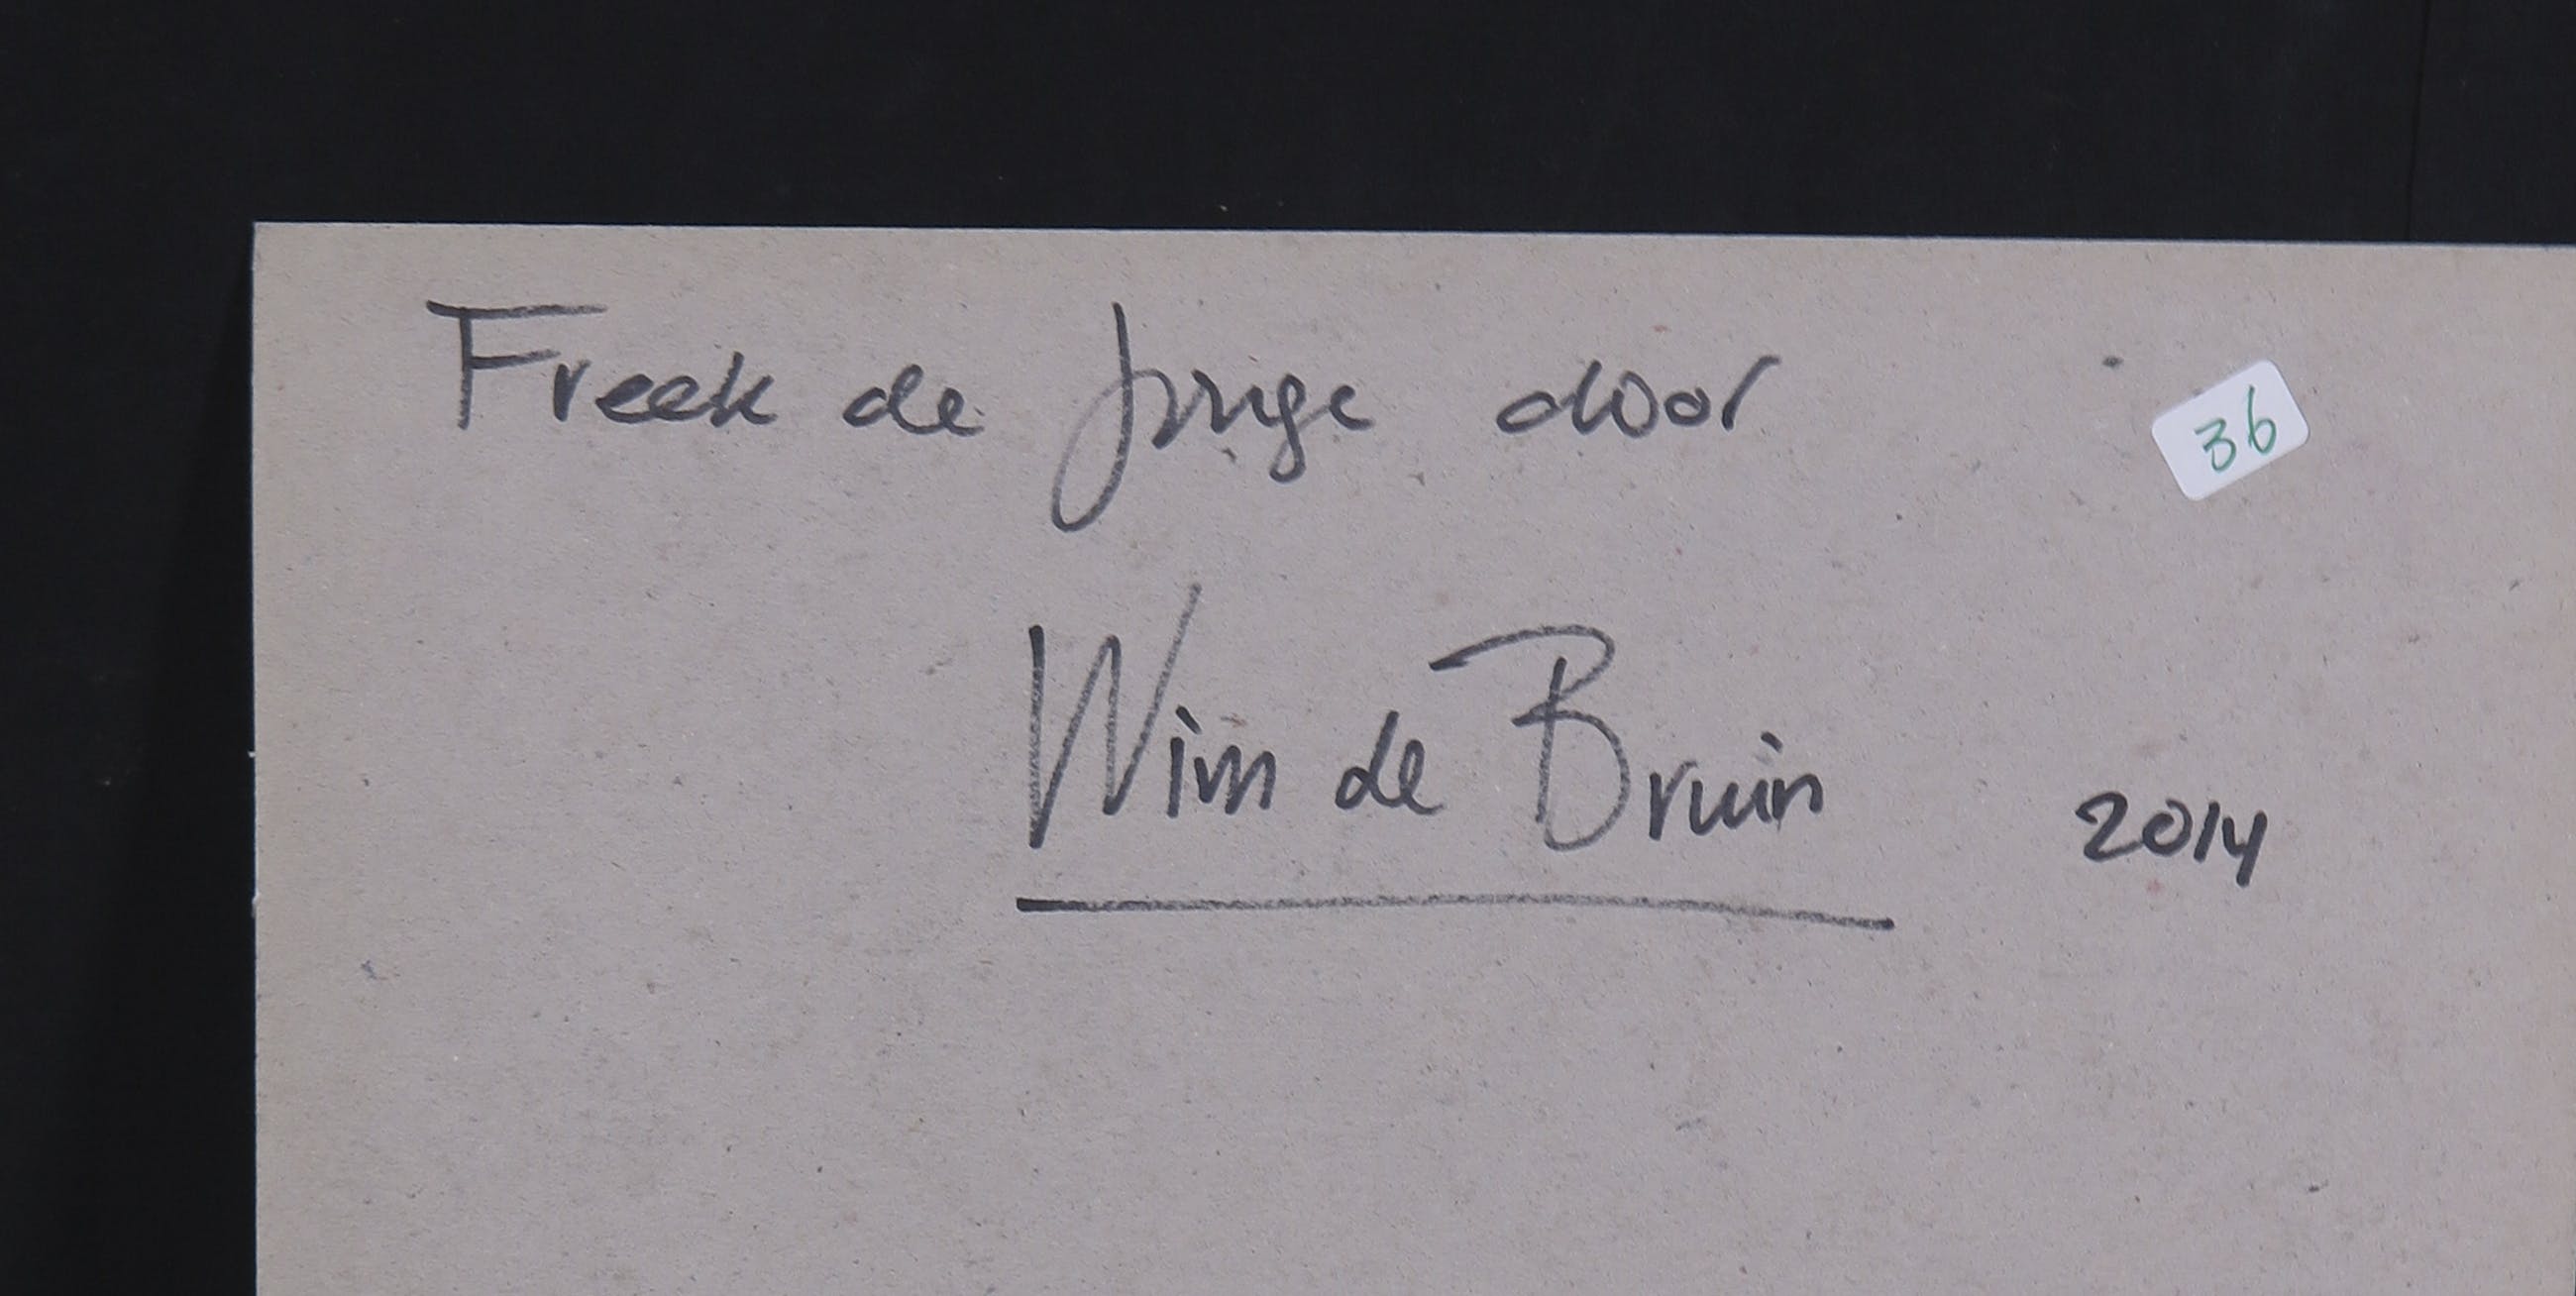 Freek de Jonge door
36
Wim de Bruin 2014